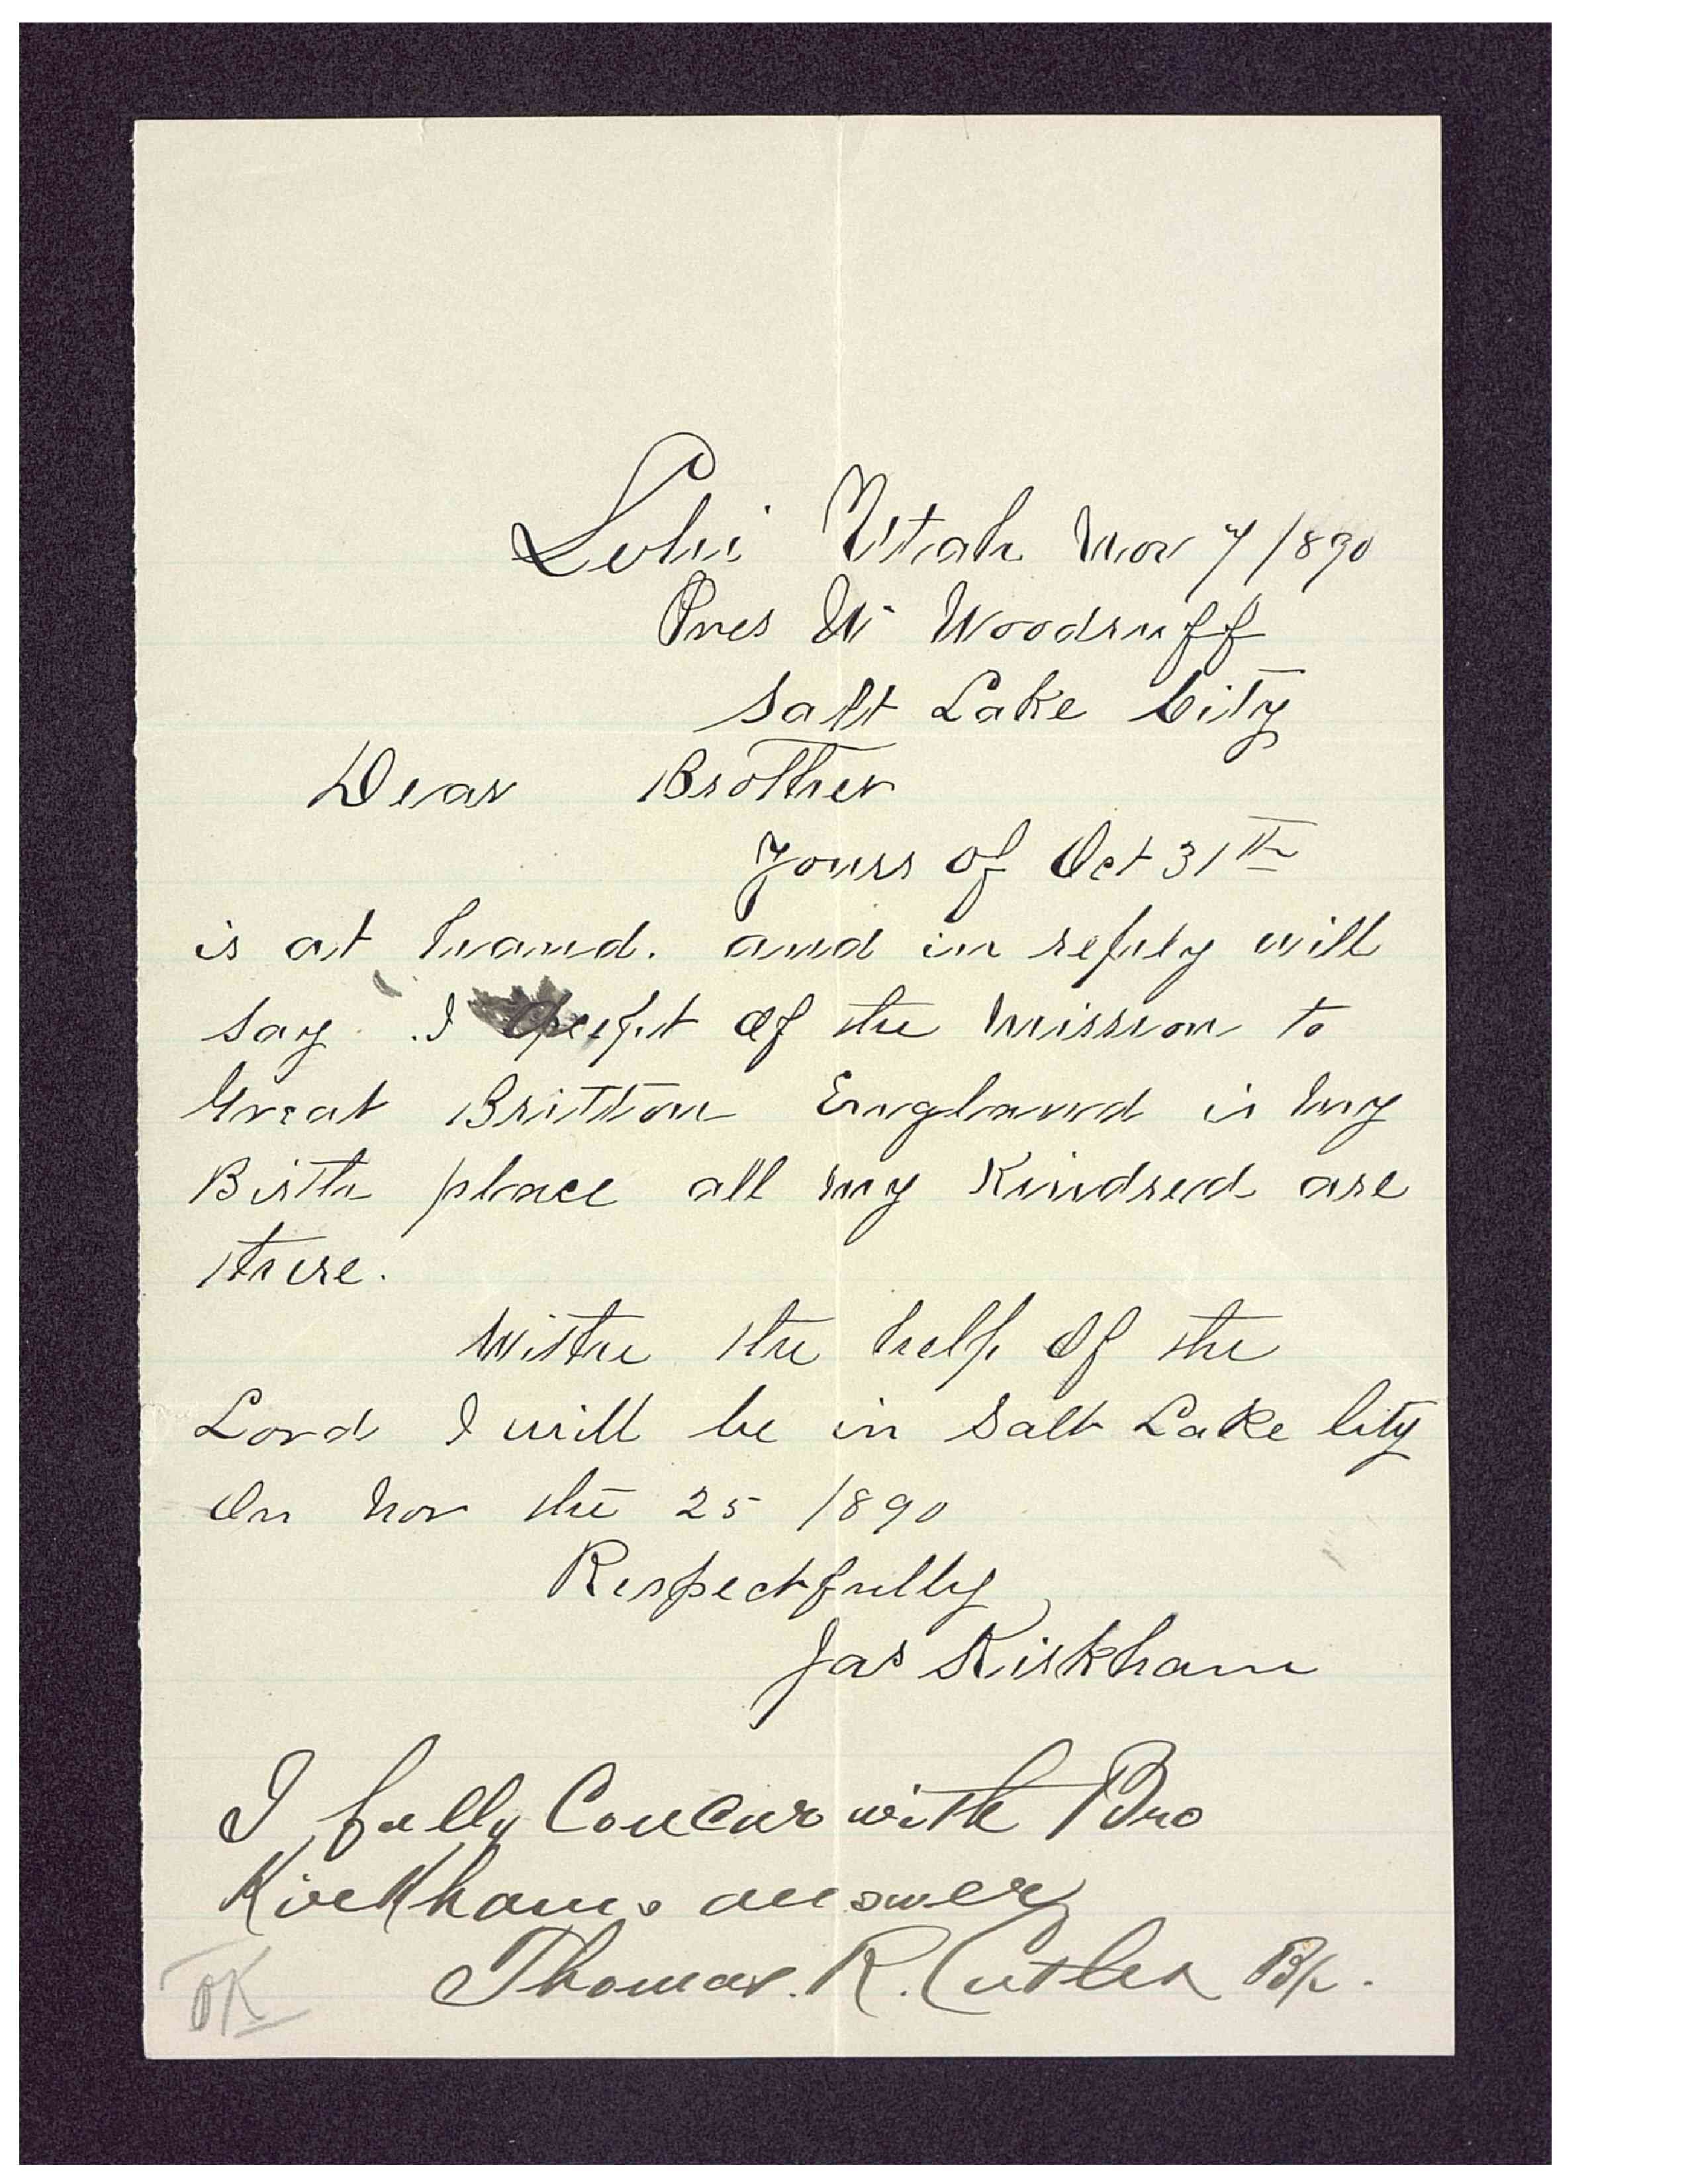 Lehi Utah Nov 7 1890
Pres W Woodruff
Salt Lake City
Dear Brother
Yours of Oct 31th
is at hand. and in reply will
say I of the mission to
Great Britton England is my
Birth place all my Kindred are
there.
With the help of the
Lord I will be in Salt Lake City
On Nov the 25 1890
Respectfully
Jas Kirkham
I fully Concur with Bro
Kirkhams answer
Thomas. R. Cutler Bp.
OK